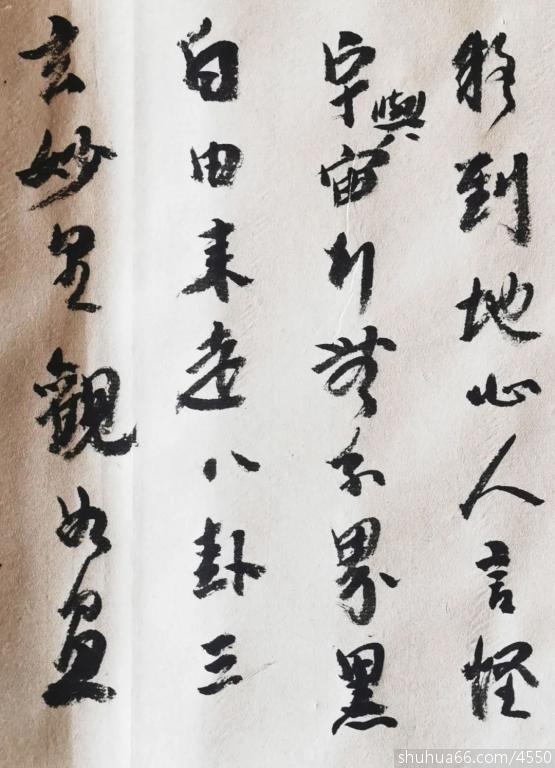 移到地心人言怪
宇與宙打無分界黑
白由來走八卦三
玄妙里觀如盈
shuhua66.com/4550